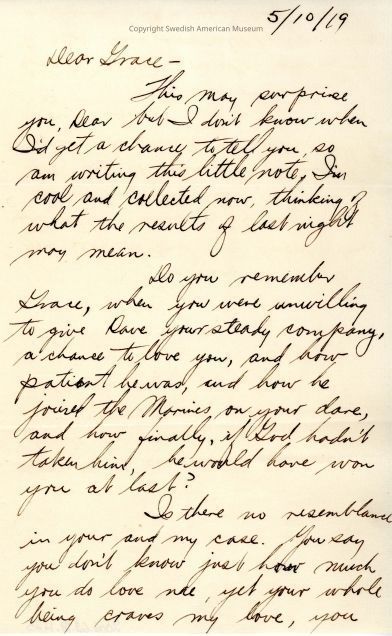 5/10/19
Copyright Swedish American Museum
Dear Grace-
This may surprise
you, Dear but I don't know when
I'd get a chance to tell you, so
am writing this little note, I'm
cool and collected now, thinking of
what the results of last night
may mean.
Do you remember
Grace, when you were unwilling
to give Dave your steady company,
a chance to love you, and how
patient he was, and how he
joined the Marines, on your dare,
and how finally, if God hadn't
taken him, he would have won
you at last?
Is there no resemblance
in your and my case. You say
you don't know just how much
you do love me, yet your whole
being craves my love, you